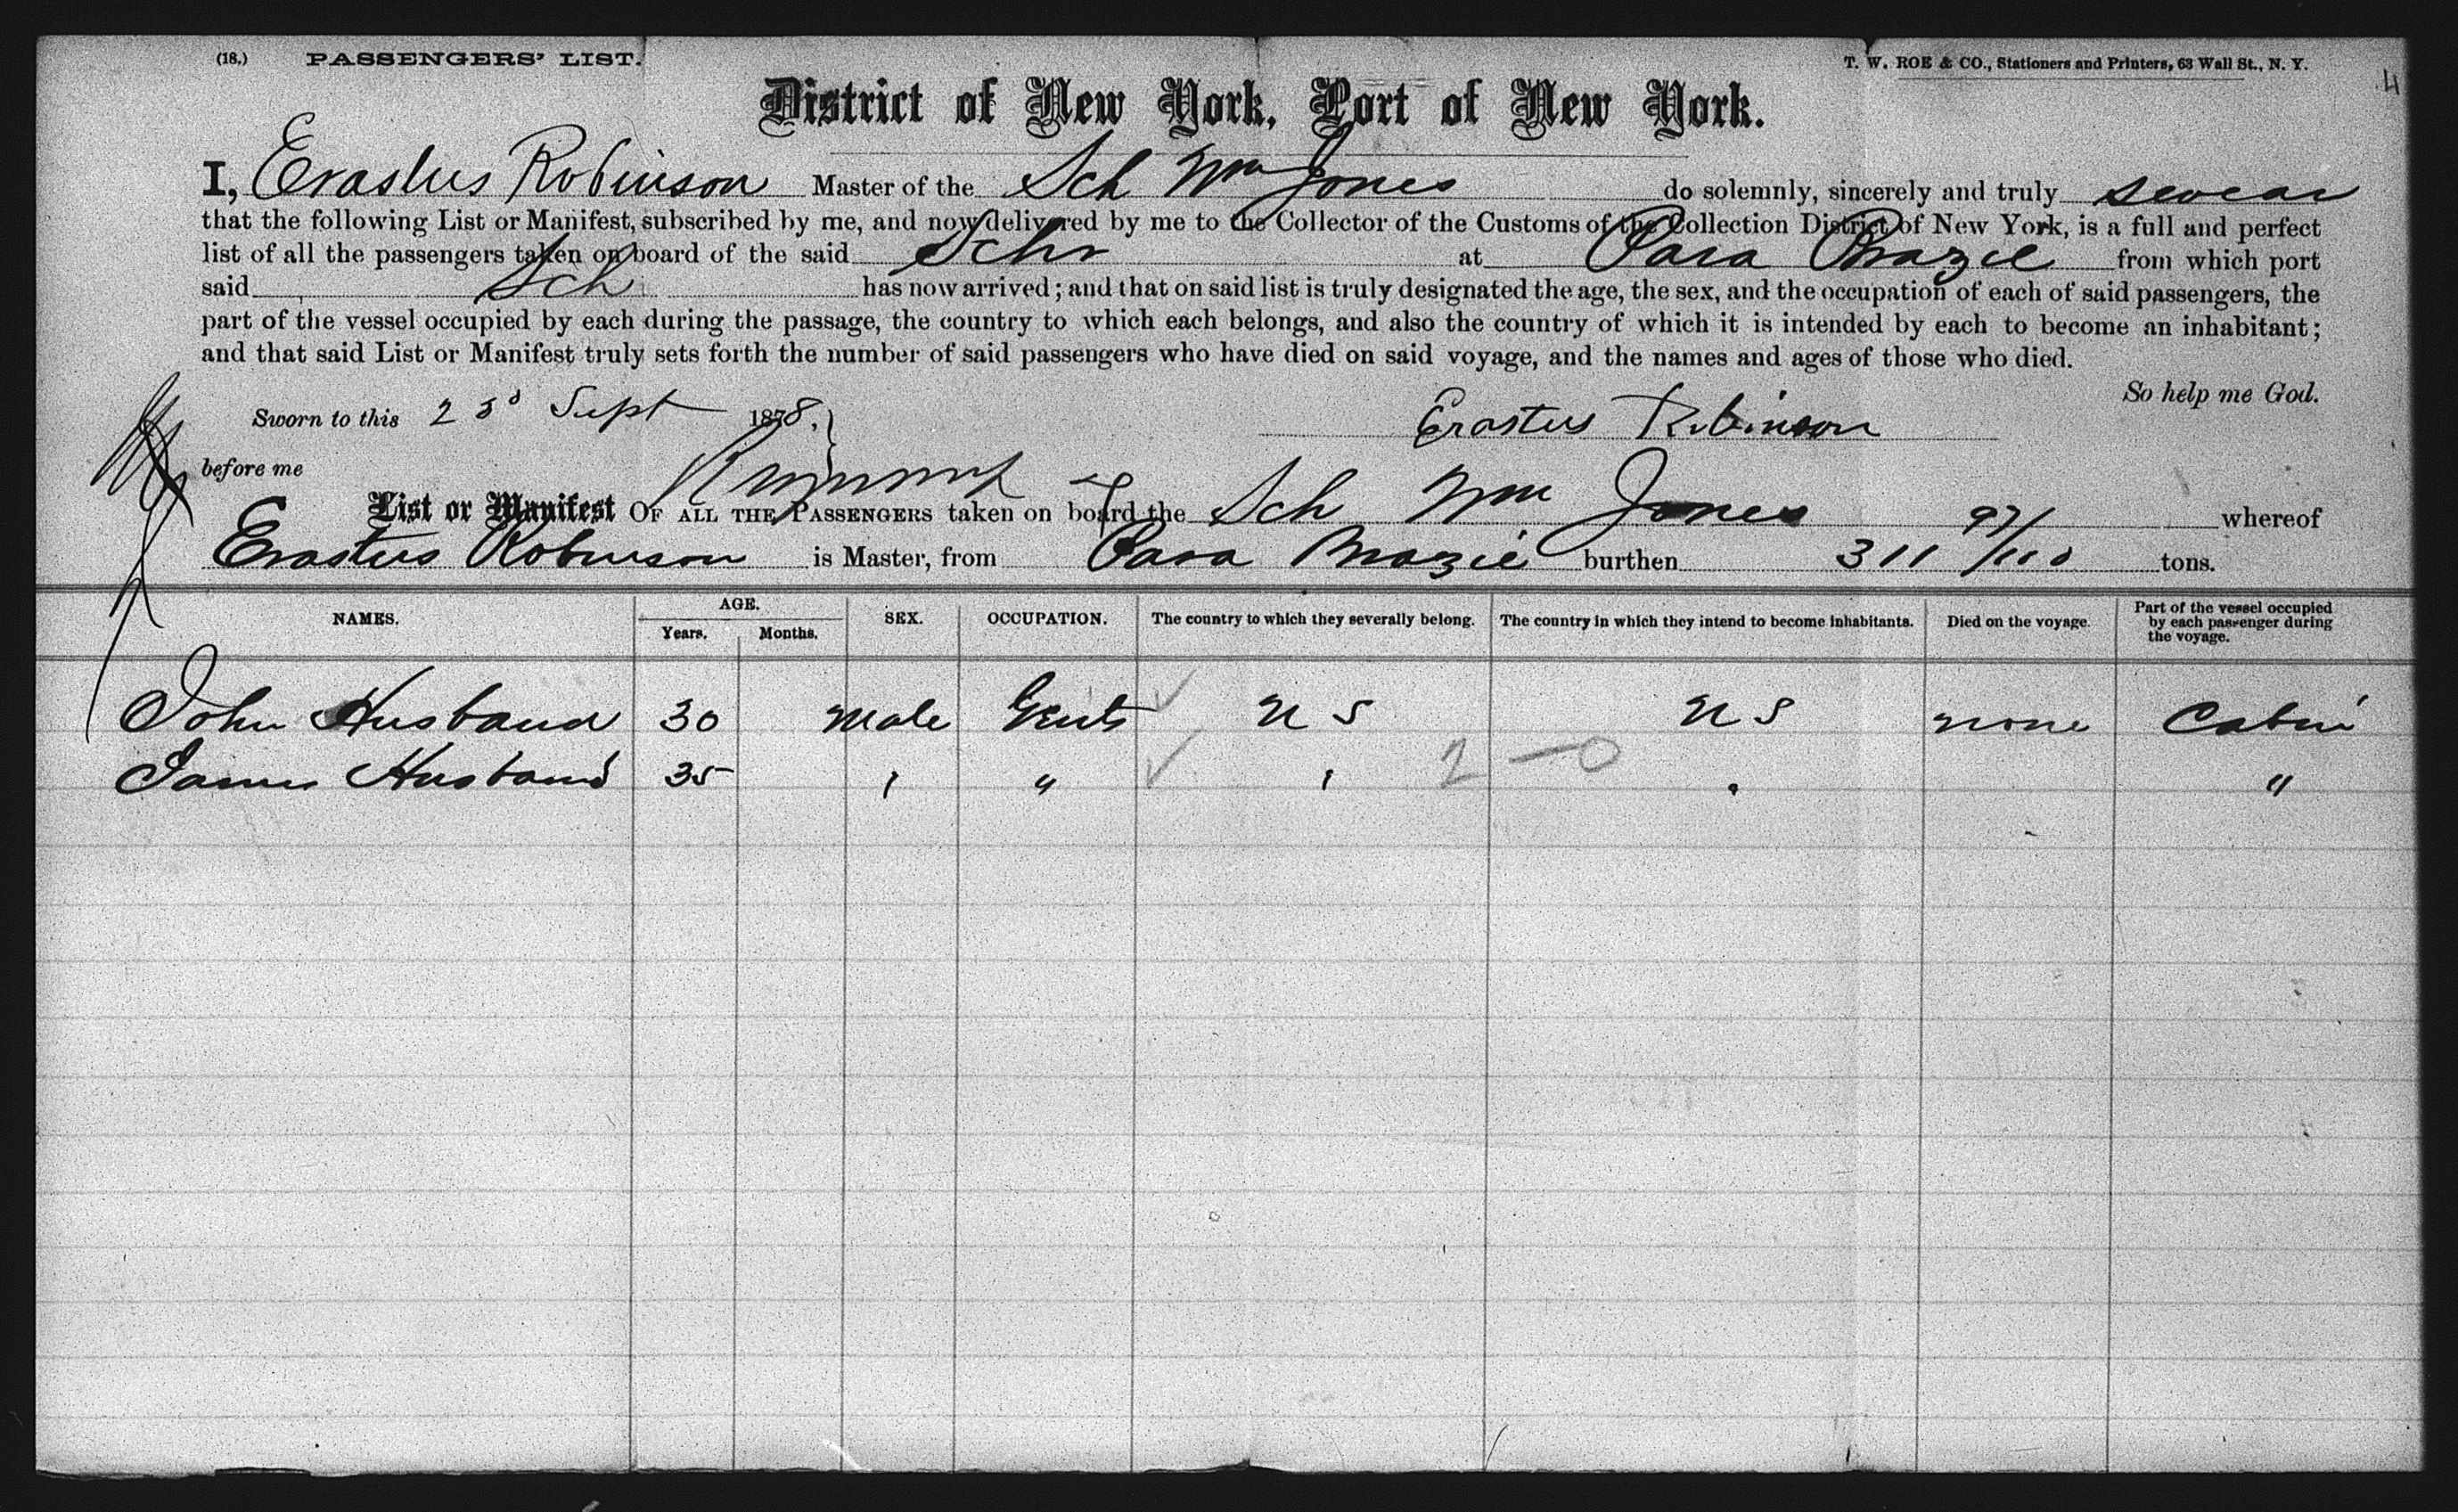 (18.) PASSENGERS' LIST. T. W. ROE & CO., Stationers and Printers, 63 Wall St., N. Y.
4
District of New York, Port of New York.
I, Erastus Robinson Master of the Sch Wm Jones do solemnly, sincerely and truly swear
that the following List or Manifest, subscribed by me, and now delivered by me to the Collector of the Customs of the Collection District of New York, is a full and perfect
list of all the passengers taken on board of the said Schr at Para Brazil from which port
said Sch has now arrived; and that on said list is truly designated the age, the sex, and the occupation of each of said passengers, the
part of the vessel occupied by each during the passage, the country to which each belongs, and also the country of which it is intended by each to become an inhabitant;
and that said List or Manifest truly sets forth the number of said passengers who have died on said voyage, and the names and ages of those who died.
So help me God.
Sworn to this 23d Sept 1878. Erastus Robinson
before me
List or Manifest OF ALL THE PASSENGERS taken on board the Sch Wm Jones whereof
Erastus Robinson is Master, from Para Brazil burthen 311 97/100 tons.
NAMES. AGE. Years. Months. SEX. OCCUPATION. The country to which they severally belong. The country in which they intend to become inhabitants. Died on the voyage. Part of the vessel occupied by each passenger during the voyage.
John Husband 30 Male Gents U S U S none Cabin
James Husband 35 " " " " "
2 — 0